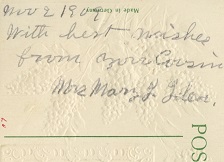 Nov 2 1909
Made in Germany
With best wishes
from your Cousin
Mrs Mary
POS